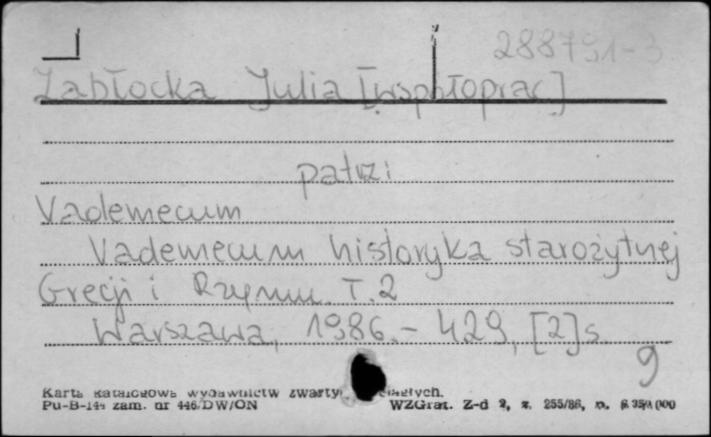 288751-3
Zabłocka Julia [współoprac]
patrz:
Vademecum
Vademecum historyka starożytnej
Grecji i Rzymu. T. 2
Warszawa, 1986. - 429, [2] s.
9
Karta katalogowa wydawnictw zwartych
Pu-B-144 zam. nr 446/DW/ON WZGraf. Z-d 2, z. 255/86, n.